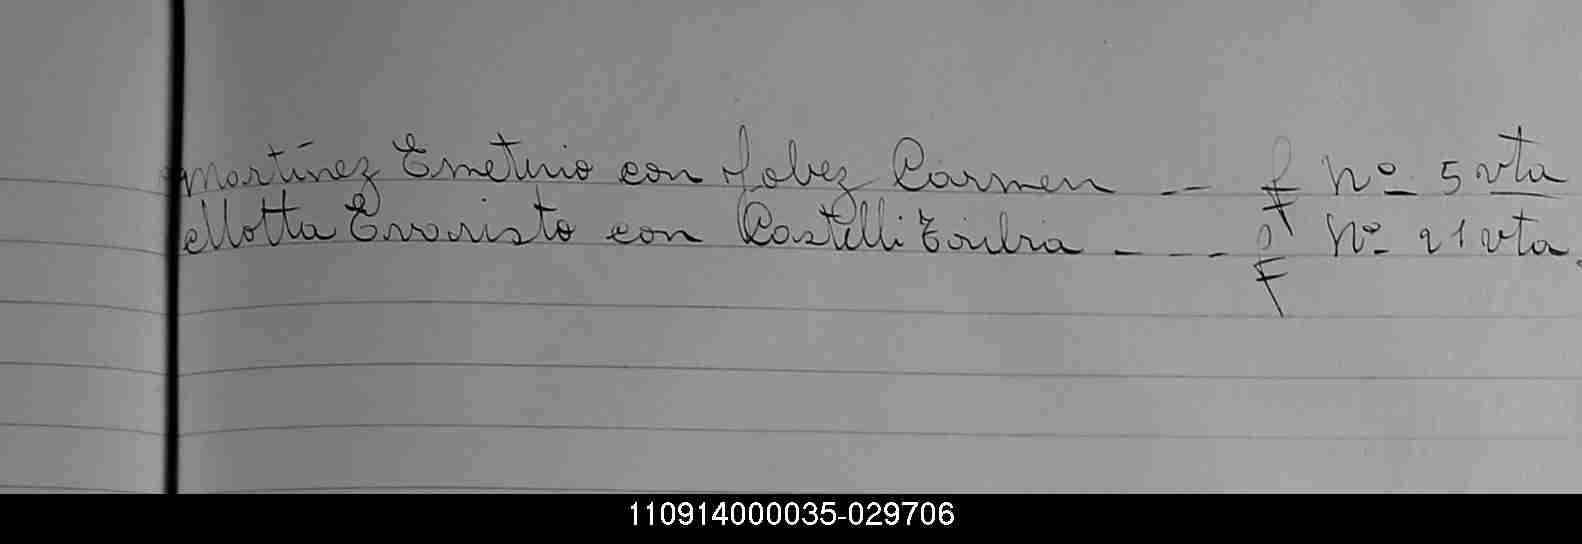 Martínez Emeterio con Jobez Carmen -- f Nº 5 vta
Motta Evaristo con Castelli --- f Nº 21 vta.
110914000035-029706